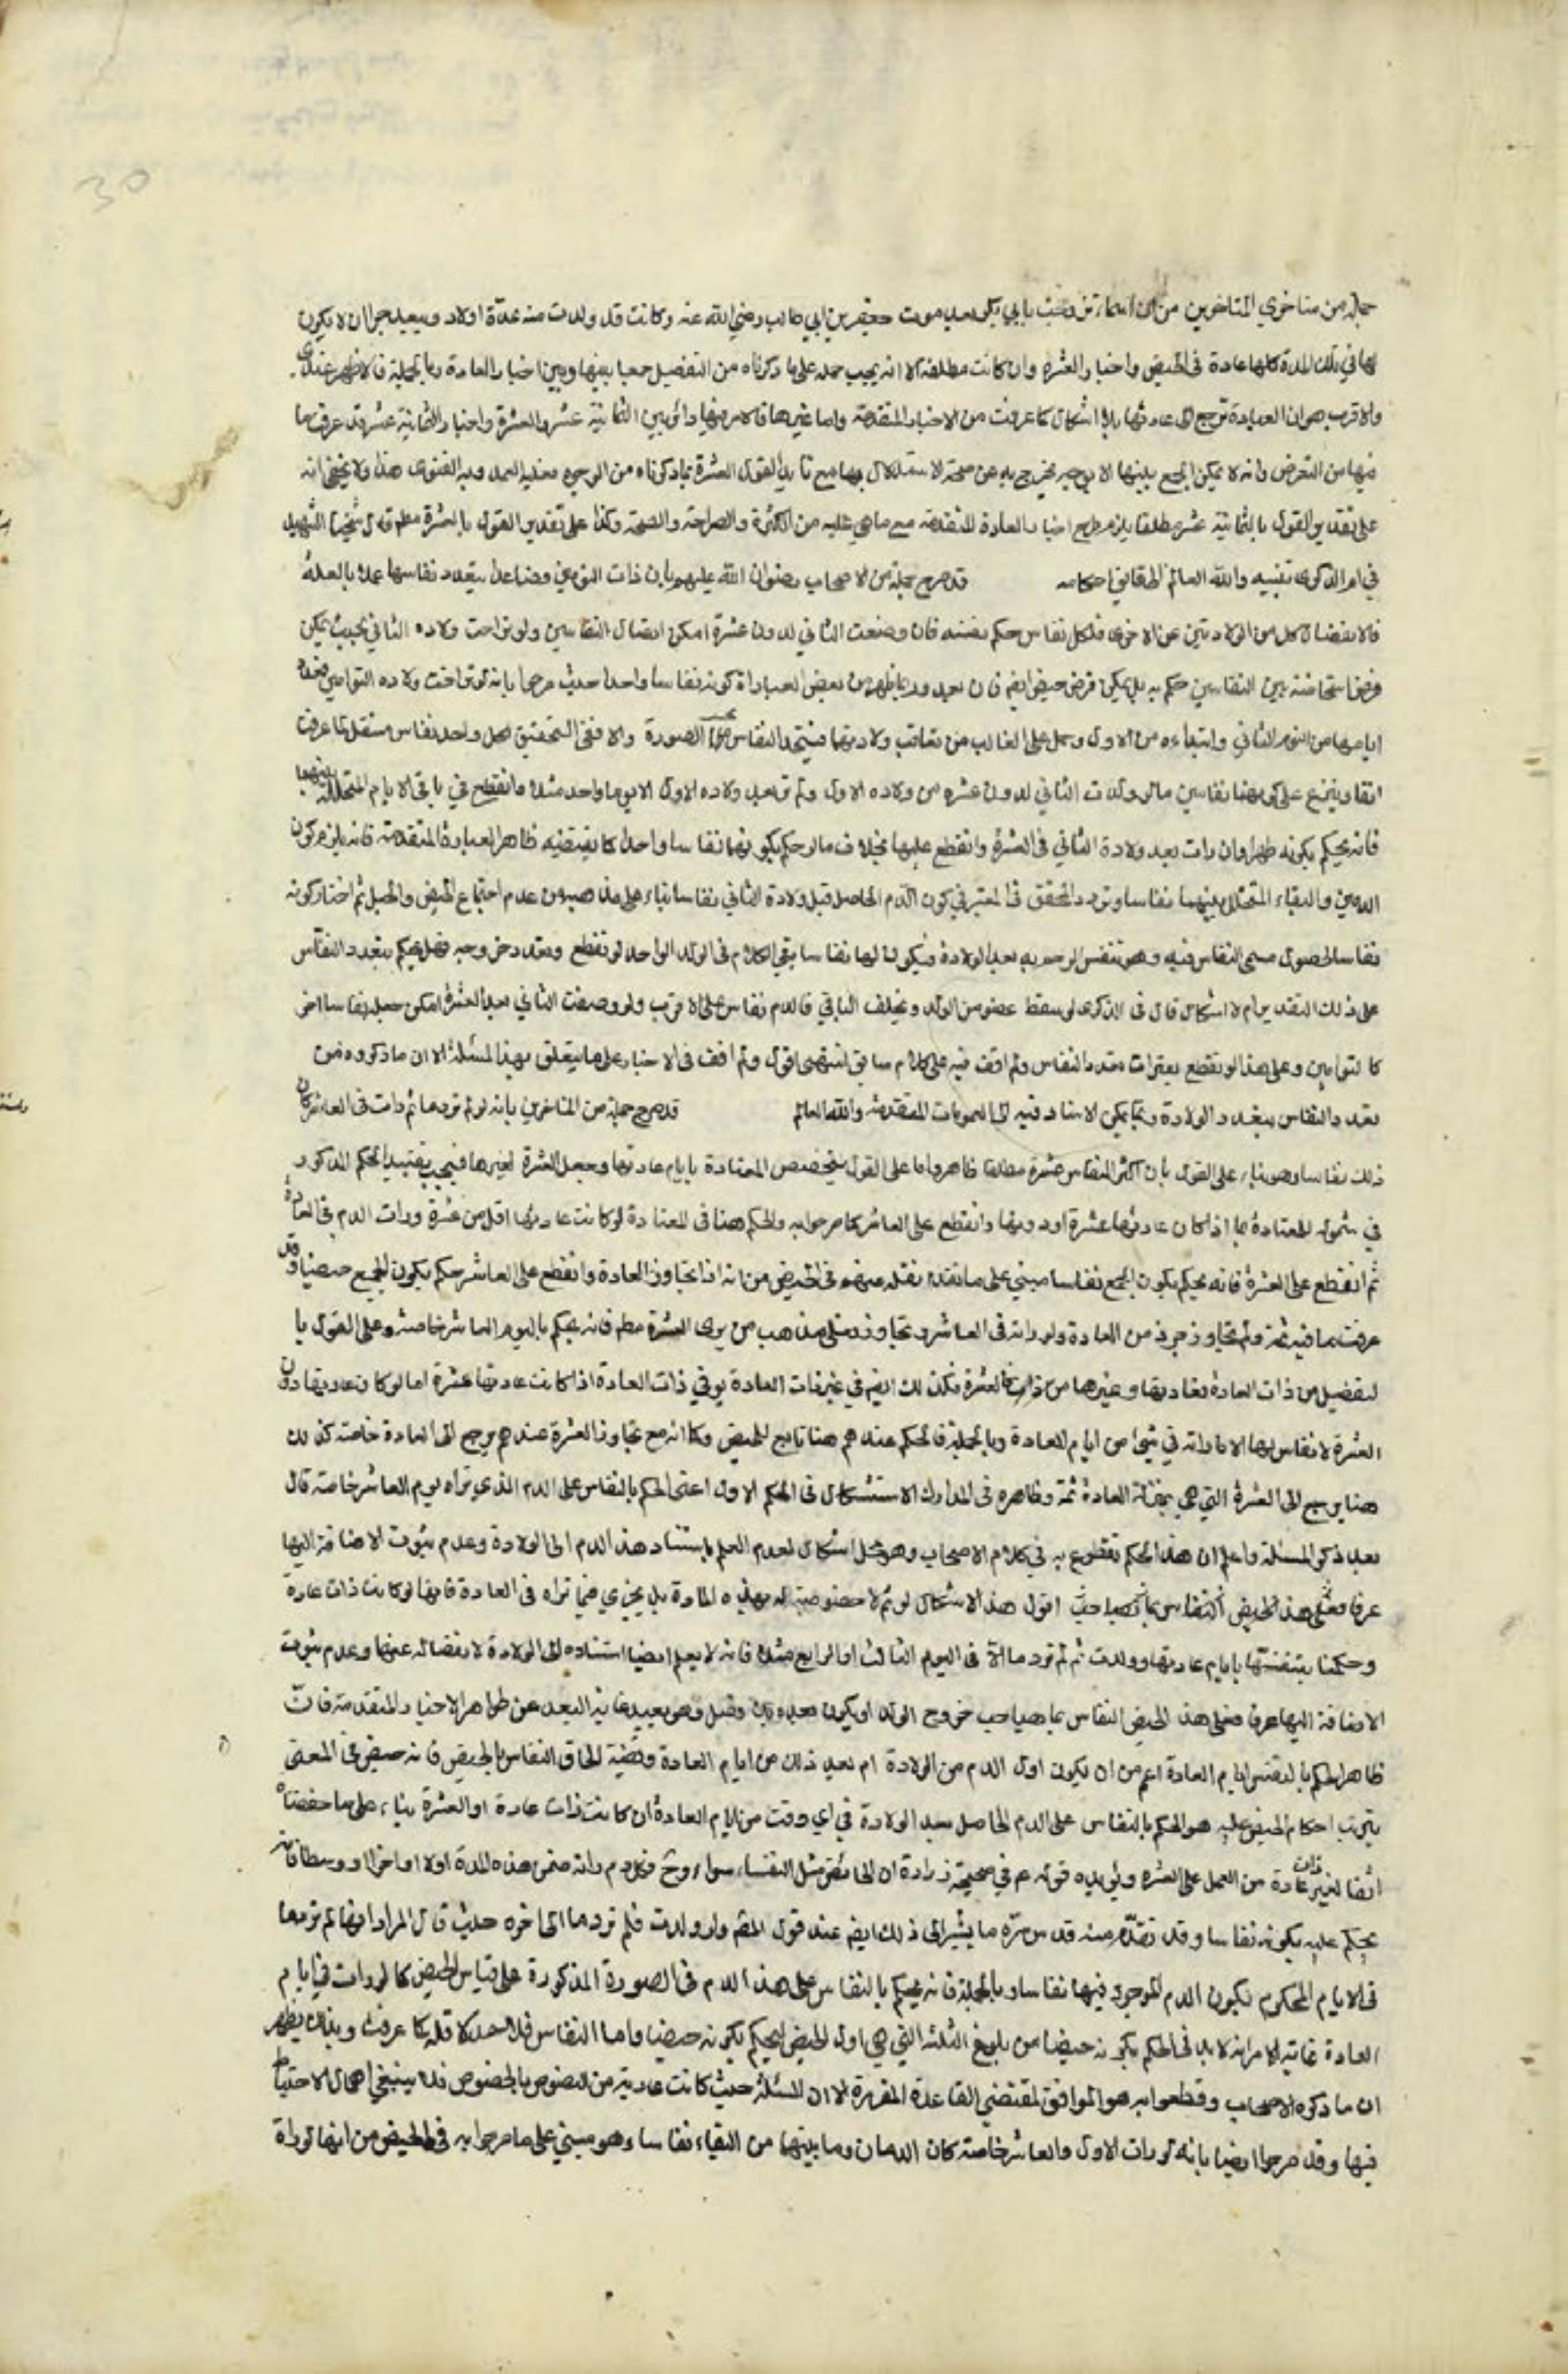 30
جملة من متاخري المتاخرين من ان اسماء تزوجت بابي بكر بعد موت جعفر بن ابي طالب رضي الله عنه وكانت قد ولدت منه عدة اولاد ويبعد جدا ان لا يكون
لها في تلك المدة كلها عادة في الحيض واخبار العشرة وان كانت مطلقة الا انه يجب حمله على ما ذكرناه من التفصيل جمعا بينها وبين اخبار العادة وبالجملة فالاظهر عندي
والاقرب هو ان المعتادة ترجع الى عادتها بلا اشكال كما عرفت من الاخبار المتقدمة واما غيرها فالامر فيها دائر بين الثمانية عشر والعشرة واخبار الثمانية عشر قد عرفت ما
فيها من التعرض وانه لا يمكن الجمع بينها الا بوجه يخرج به عن صحة الاستدلال بها مع تايد القول العشرة بما ذكرناه من الوجوه فعليه العمد وبه الفتوى هذا ولا يخفى انه
على تقدير القول بالثمانية عشر مطلقا يلزم طرح اخبار العادة المتقدمة مع ما هي عليه من الكثرة والصراحة والصحة وكذا على تقدير القول بالعشرة مطم قال شيخنا الشهيد
في الذكرى تنبيه والله العالم بحقايق احكامه قد صرح جملة من الاصحاب رضوان الله عليهم بان ذات التومين فصاعدا يتعدد نفاسها عملا بالعلة
فالانفصال كل من الولادتين عن الاخرى فلكل نفاس حكم نفسه فان وضعت الثاني لدون عشرة امكن اتصال النفاسين ولو تراخت ولاده الثاني بحيث يمكن
فرض استحاضة بين النفاسين حكم به بل يمكن فرض حيض ايضم فان بعيد وربما يظهر من بعض العبارات كونه نفاسا واحدا حيث صرحوا بانه لو تراخت ولاده التوامين فعدد
ايامها من التوم الثاني وابتداءه من الاول وحمل على الغالب من تعاقب ولادتهما فيتحد النفاس بحسب الصورة والا ففي التحقيق لكل واحد نفاس مستقل لما عرفت
انفا ويتفرع على كونهما نفاسين ما لو ولدت الثاني لدون عشره من ولاده الاول ولم تر بعد ولاده الاول الا يوما واحد مثلا وانقطع في باقي الايام المتخللة بينهما
فانه يحكم بكونه طهرا وان رات بعد ولادة الثاني في العشرة وانقطع عليها بخلاف ما لو حكم بكونهما نفاسا واحدا كما يقتضيه ظاهر العبارة المتقدمة فانه يلزم كون
الدمين والنقاء المتخلل بينهما نفاسا وتردد المحقق في المعتبر في كون الدم الحاصل قبل ولادة الثاني نفاسا بناء على مذهبه من عدم اجتماع الحيض والحبل ثم اختار كونه
نفاسا لحصول مسمى النفاس فيه وهو تنفس الرحم به بعد الولادة فيكون لها نفاسا بقي الكلام في الولد الواحد لو تقطع وتعدد خروجه فهل يحكم بتعدد النفاس
على ذلك التقدير ام لا اشكال قال في الذكرى لو سقط عضو من الولد وتخلف الباقي فالدم نفاس على الاقرب ولو وضعت الثاني بعد العشرة امكن جعله نفاسا اخر
كالتوامين وعلى هذا لو تقطع بفترات تعدد النفاس ولم اقف فيه على كلام سابق انتهى اقول ولم اقف في الاخبار على ما يتعلق بهذا المسئلة الا ان ما ذكروه من
تعدد النفاس بتعدد الولادة ربما يمكن الاستناد فيه الى العمومات المتقدمة والله العالم قد صرح جملة من المتاخرين بانه لو لم تر دما ثم رات في العاشر كان
ذلك نفاسا وهو بناء على القول بان اكثر النفاس عشرة مطلقا ظاهر واما على القول بتخصيص المعتادة بايام عادتها وجعل العشرة لغيرها فيجب تقييد الحكم المذكور
في شموله للمعتادة بما اذا كان عادتها عشرة او دونها وانقطع على العاشر كما صرحوا به والحكم هنا في المعتادة لو كانت عادتها اقل من عشرة ورات الدم في العادة
ثم انقطع على العشرة فانه يحكم بكون الجمع نفاسا مبني على ما تقدم نقله عنهم في الحيض من انه اذا تجاوز العادة وانقطع على العاشر حكم بكون الجميع حيضا وقد
عرفت ما فيه ثمة ولم تجاوز جزء من العادة ولو راته في العاشر وتجاوز فعلى مذهب من يرى العشرة مطم فانه يحكم باليوم العاشر خاصة وعلى القول با
لتفصيل من ذات العادة بعادتها وغيرها من ذات العشرة فكذلك ايضم في غير ذات العادة بوفي ذات العادة اذا كانت عادتها عشرة اما لو كان عادتها دون
العشرة لا نفاس لها الا ما راته في شئ من ايام العادة وبالجملة فالحكم عندهم هنا تابع للحيض وكما انه مع تجاوز العشرة عندهم يرجع الى العادة خاصة كذلك
هنا يرجع الى العشرة التي هي بمنزلة العادة ثمة وظاهره في المدارك الاستشكال في الحكم الاول اعني الحكم بالنفاس على الدم الذي تراه يوم العاشر خاصة قال
بعد ذكر المسئلة واعلم ان هذا الحكم مقطوع به في كلام الاصحاب وهو محل اشكال لعدم العلم باستناد هذا الدم الى الولادة وعدم ثبوت الاضافة اليها
عرفا فعلى هذا الحيض النفاس بما يصاحب اقول هذا الاشكال لو تم لا خصوصية له بهذه المادة بل يجري فيما تراه في العادة فانها لو كانت ذات عادة
وحكمنا بتنفسها بايام عادتها وولدت ثم لم تر دما الا في اليوم الثالث او الرابع مثلا فانه لا يعلم ايضا استناده الى الولادة لانفصاله عنها وعدم ثبوت
الاضافة اليها عرفا فعلى هذا الحيض النفاس بما يصاحب خروج الولد او يكون بعده وقبل وهو بعيد غاية البعد عن ظواهر الاخبار المتقدمة فان
ظاهر الحكم بالتنفس ايام العادة اعم من ان يكون اول الدم من الولادة ام بعد ذلك من ايام العادة وقضية الحاق النفاس بالحيض فانه حيض في المعنى
يترتب احكام الحيض عليه هو الحكم بالنفاس على الدم الحاصل بعد الولادة في اي وقت من ايام العادة ان كانت ذات عادة او العشرة بناء على ما حققناه
انفا لغير ذات عادة من العمل على العشره ويؤيده قوله ع في صحيحة زرارة ان الحائض مثل النفساء سواء وح فكل دم راته ضمن هذه المدة اولا او اخرا او وسطا فانه
يحكم عليه بكونه نفاسا وقد تقدم منه قدس سره ما يشير الى ذلك ايضم عند قول المصم ولو ولدت فلم تر دما الى اخره حيث قال المراد انها لم تر دما
في الايام المحكوم بكون الدم الموجود فيها نفاسا وبالجملة فانه يحكم بالنفاس على هذا الدم في الصورة المذكورة على قياس الحيض كما لو رات في ايام
العادة غاية الامر انه لا بد في الحكم بكونه حيضا من بلوغ الثلثة التي هي اول الحيض ليحكم بكونه حيضا واما النفاس فلا حد لاقله كما عرفت وبذلك يظهر
ان ما ذكره الاصحاب وقطعوا به هو الموافق لمقتضى القاعدة المقررة الا ان المسئلة حيث كانت عارية من النصوص بالخصوص فلا ينبغي اهمال الاحتياط
فيها وقد صرحوا ايضا بانه لو رات الاول والعاشر خاصة كان الدمان وما بينهما من النقاء نفاسا وهو مبني على ما صرحوا به في الحيض من انها لو راة